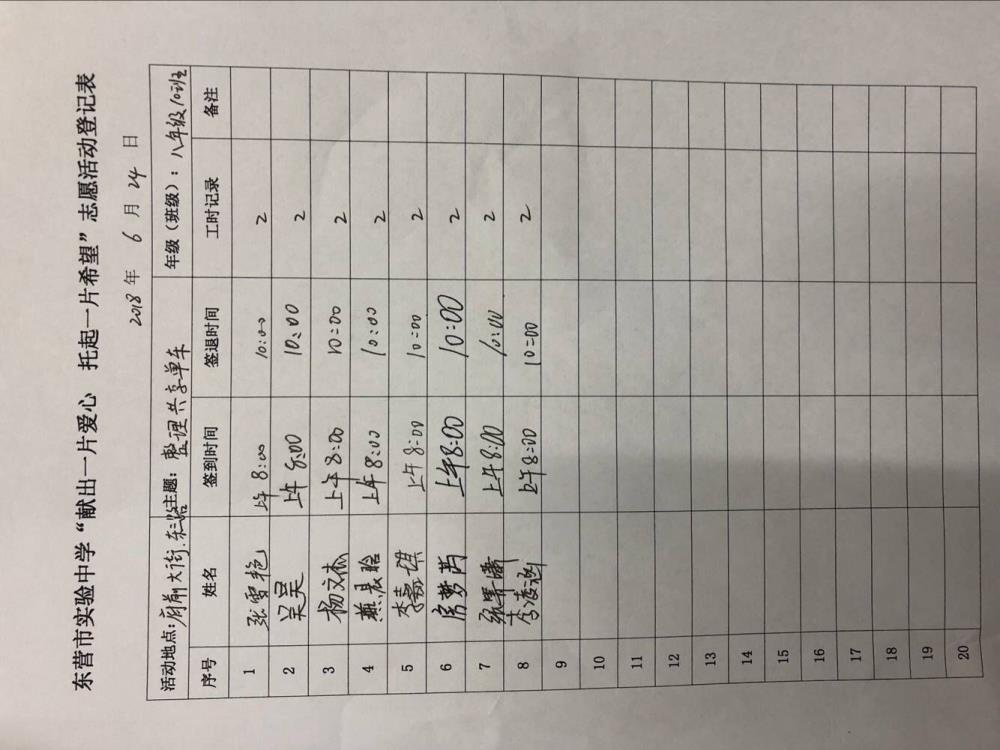 东营市实验中学“献出一片爱心 托起一片希望”志愿活动登记表
2018 年 6 月 24 日
活动地点：府前大街.东三路 主题：整理共享单车 年级（班级）：八年级10班
序号 姓名 签到时间 签退时间 工时记录 备注
1 张雪艳 上午 8:00 10:00 2
2 吴昊 上午 8:00 10:00 2
3 杨文杰 上午 8:00 10:00 2
4 燕晨晗 上午 8:00 10:00 2
5 李嘉琪 上午 8:00 10:00 2
6 房梦芮 上午8:00 10:00 2
7 上午 8:00 10:00 2
8 李凌涵 上午 8:00 10:00 2
9
10
11
12
13
14
15
16
17
18
19
20